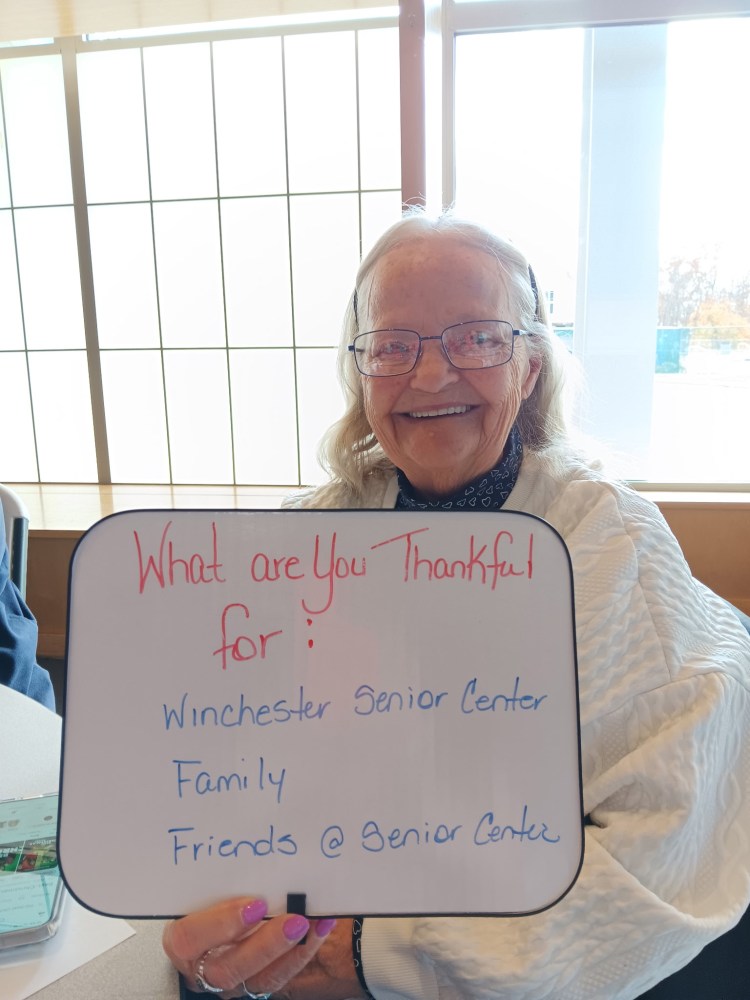 What are You Thankful
for :
Winchester Senior Center
Family
Friends @ Senior Center